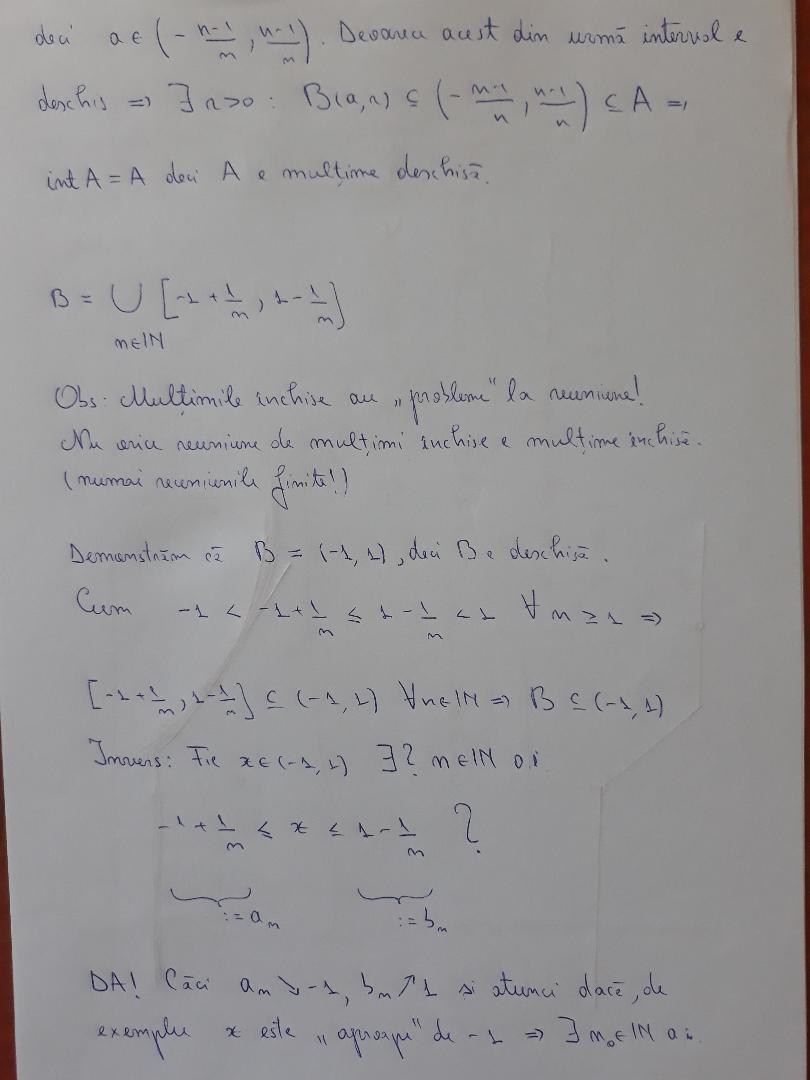 deci a ∈ (- n-1/n , n-1/n). Deoarece acest din urmă interval e
deschis => ∃ r>0 : B(a,r) ⊆ (- n-1/n , n-1/n) ⊆ A =>
int A = A deci A e mulțime deschisă.
B = ⋃ [-1 + 1/n , 1 - 1/n]
n∈ℕ
Obs: Mulțimile închise au „probleme" la reuniune!
Nu orice reuniune de mulțimi închise e mulțime închisă.
(numai reuniunile finite!)
Demonstrăm că B = (-1, 1), deci B e deschisă.
Cum -1 < -1 + 1/n ≤ 1 - 1/n < 1 ∀ n ≥ 1 =>
[-1 + 1/n , 1 - 1/n] ⊆ (-1, 1) ∀ n∈ℕ => B ⊆ (-1, 1)
Invers: Fie x ∈ (-1, 1) ∃? n∈ℕ a.î.
-1 + 1/n ≤ x ≤ 1 - 1/n ?
:= aₙ := bₙ
DA! Căci aₙ ↘ -1, bₙ ↗ 1 și atunci dacă, de
exemplu x este „aproape" de -1 => ∃ n₀∈ℕ a.î.